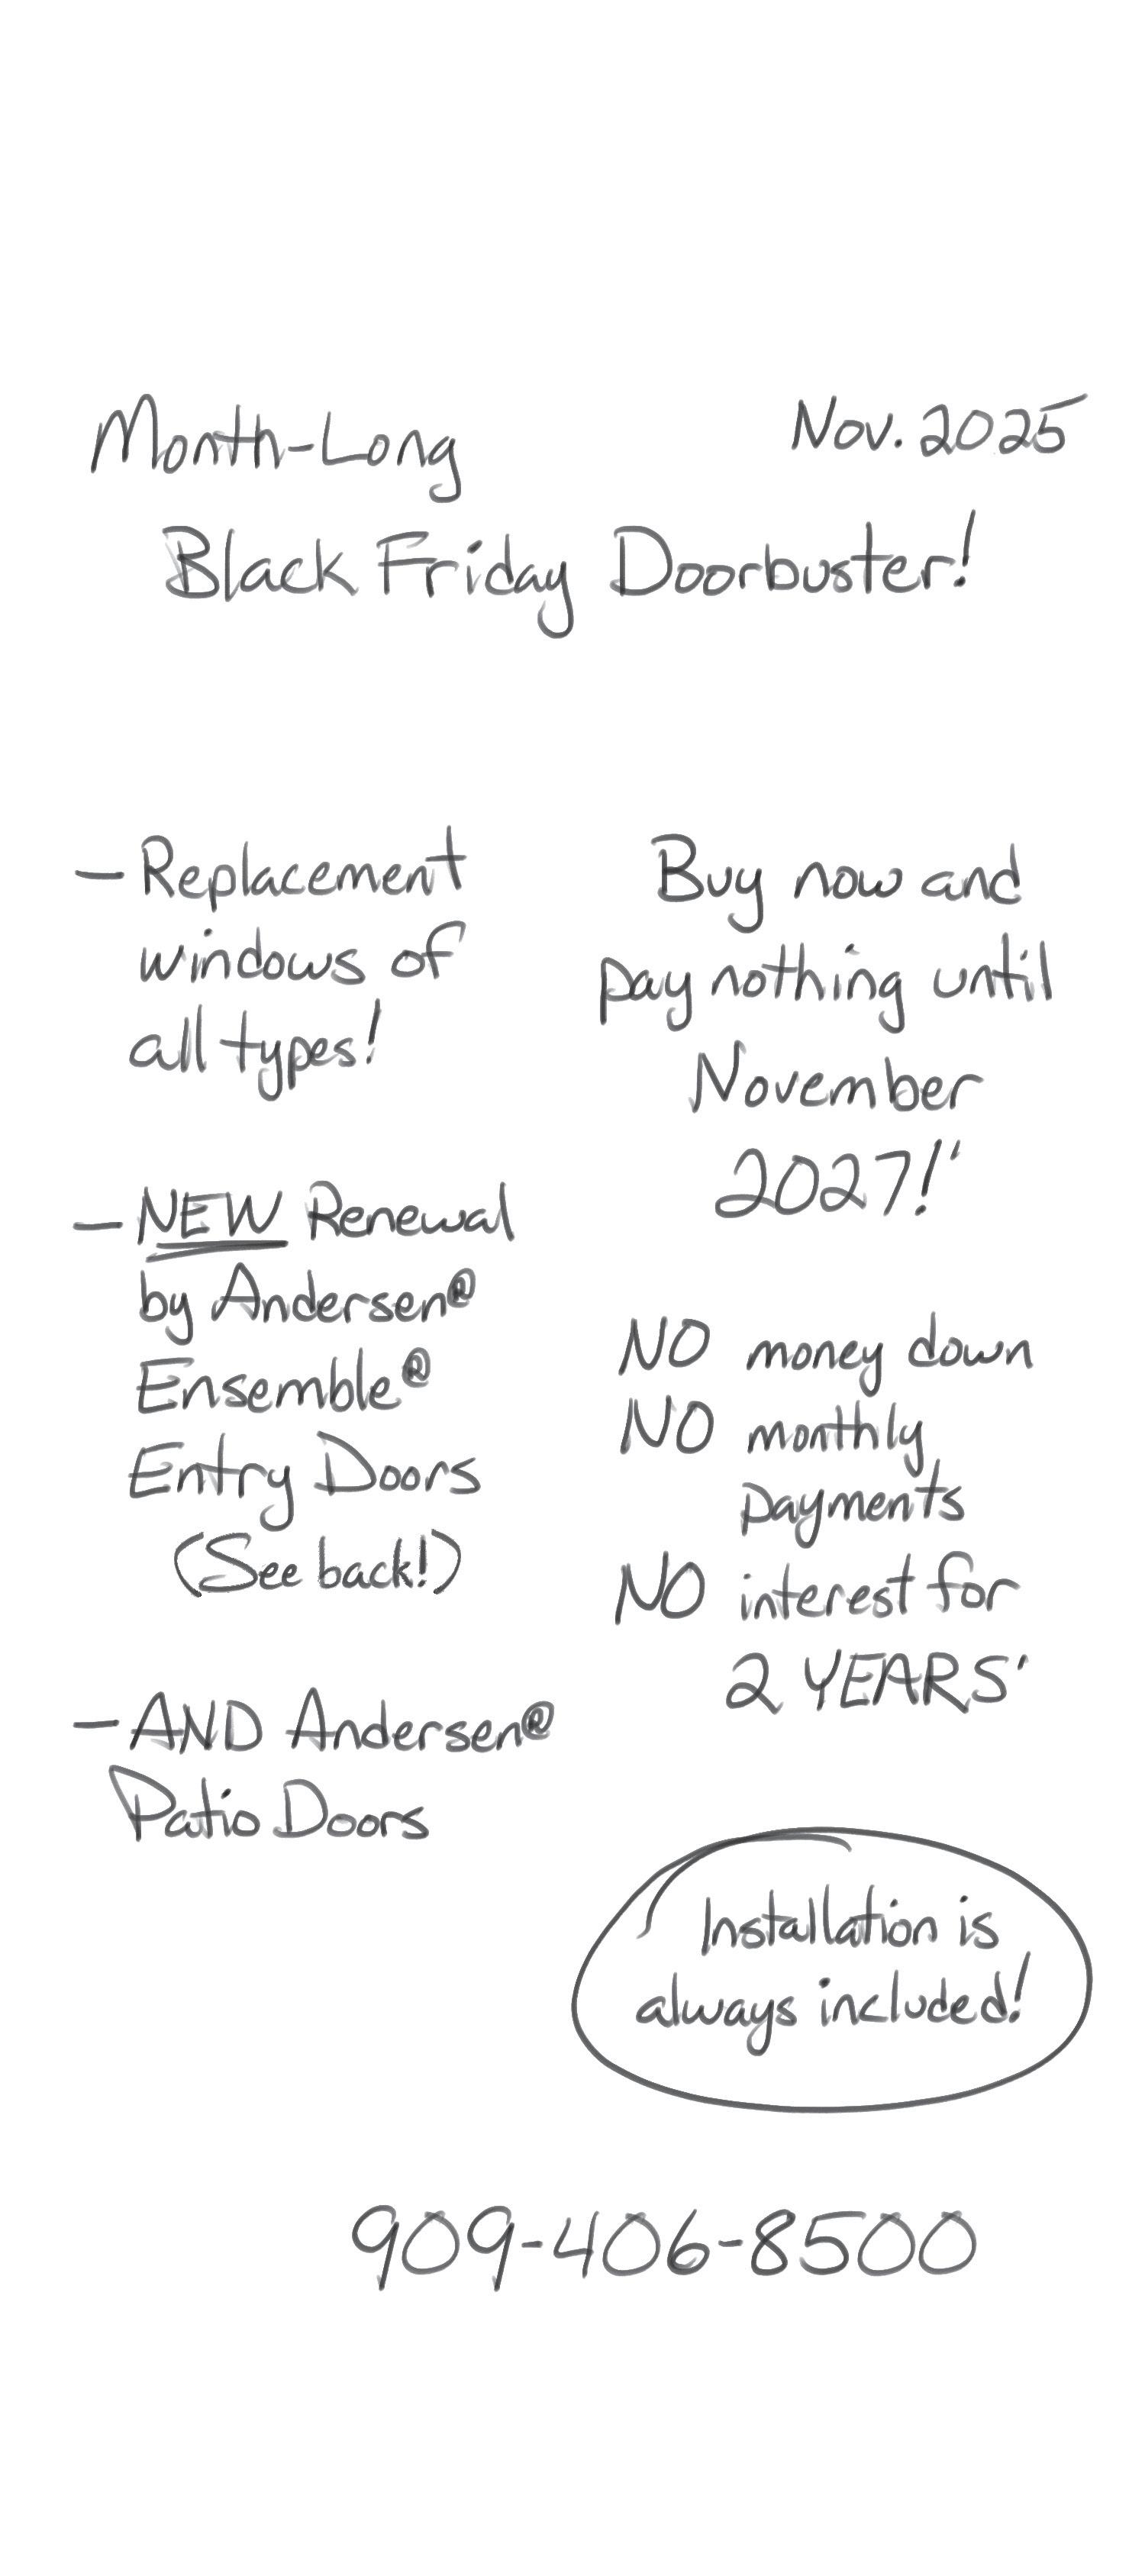 Month-Long
Nov. 2025
Black Friday Doorbuster!
— Replacement
windows of
all types!
— NEW Renewal
by Andersen®
Ensemble®
Entry Doors
(See back!)
— AND Andersen®
Patio Doors
Buy now and
pay nothing until
November
2027!'
NO money down
NO monthly
payments
NO interest for
2 YEARS'
Installation is
always included!
909-406-8500